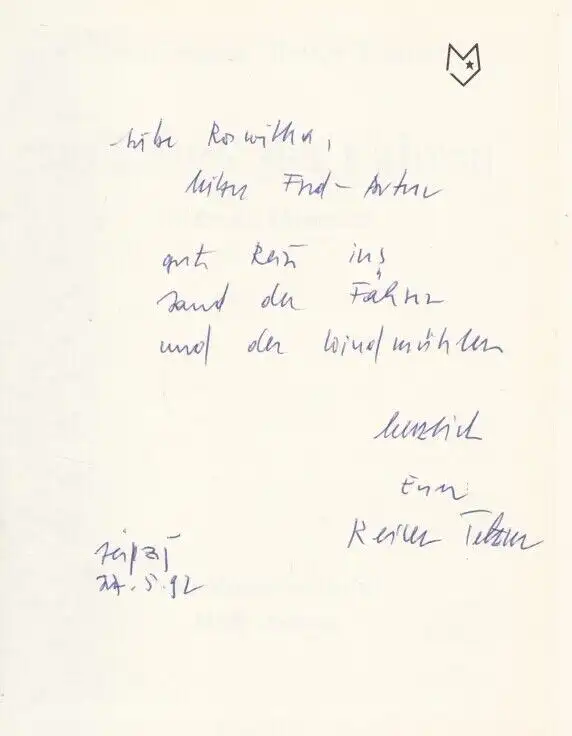 Liebe Roswitha,
lieber Fred-Artur
gute Reise ins
Land der Fähren
und der Windmühlen
herzlich
Euer
Reiner Tetzner
Leipzig
27.5.92